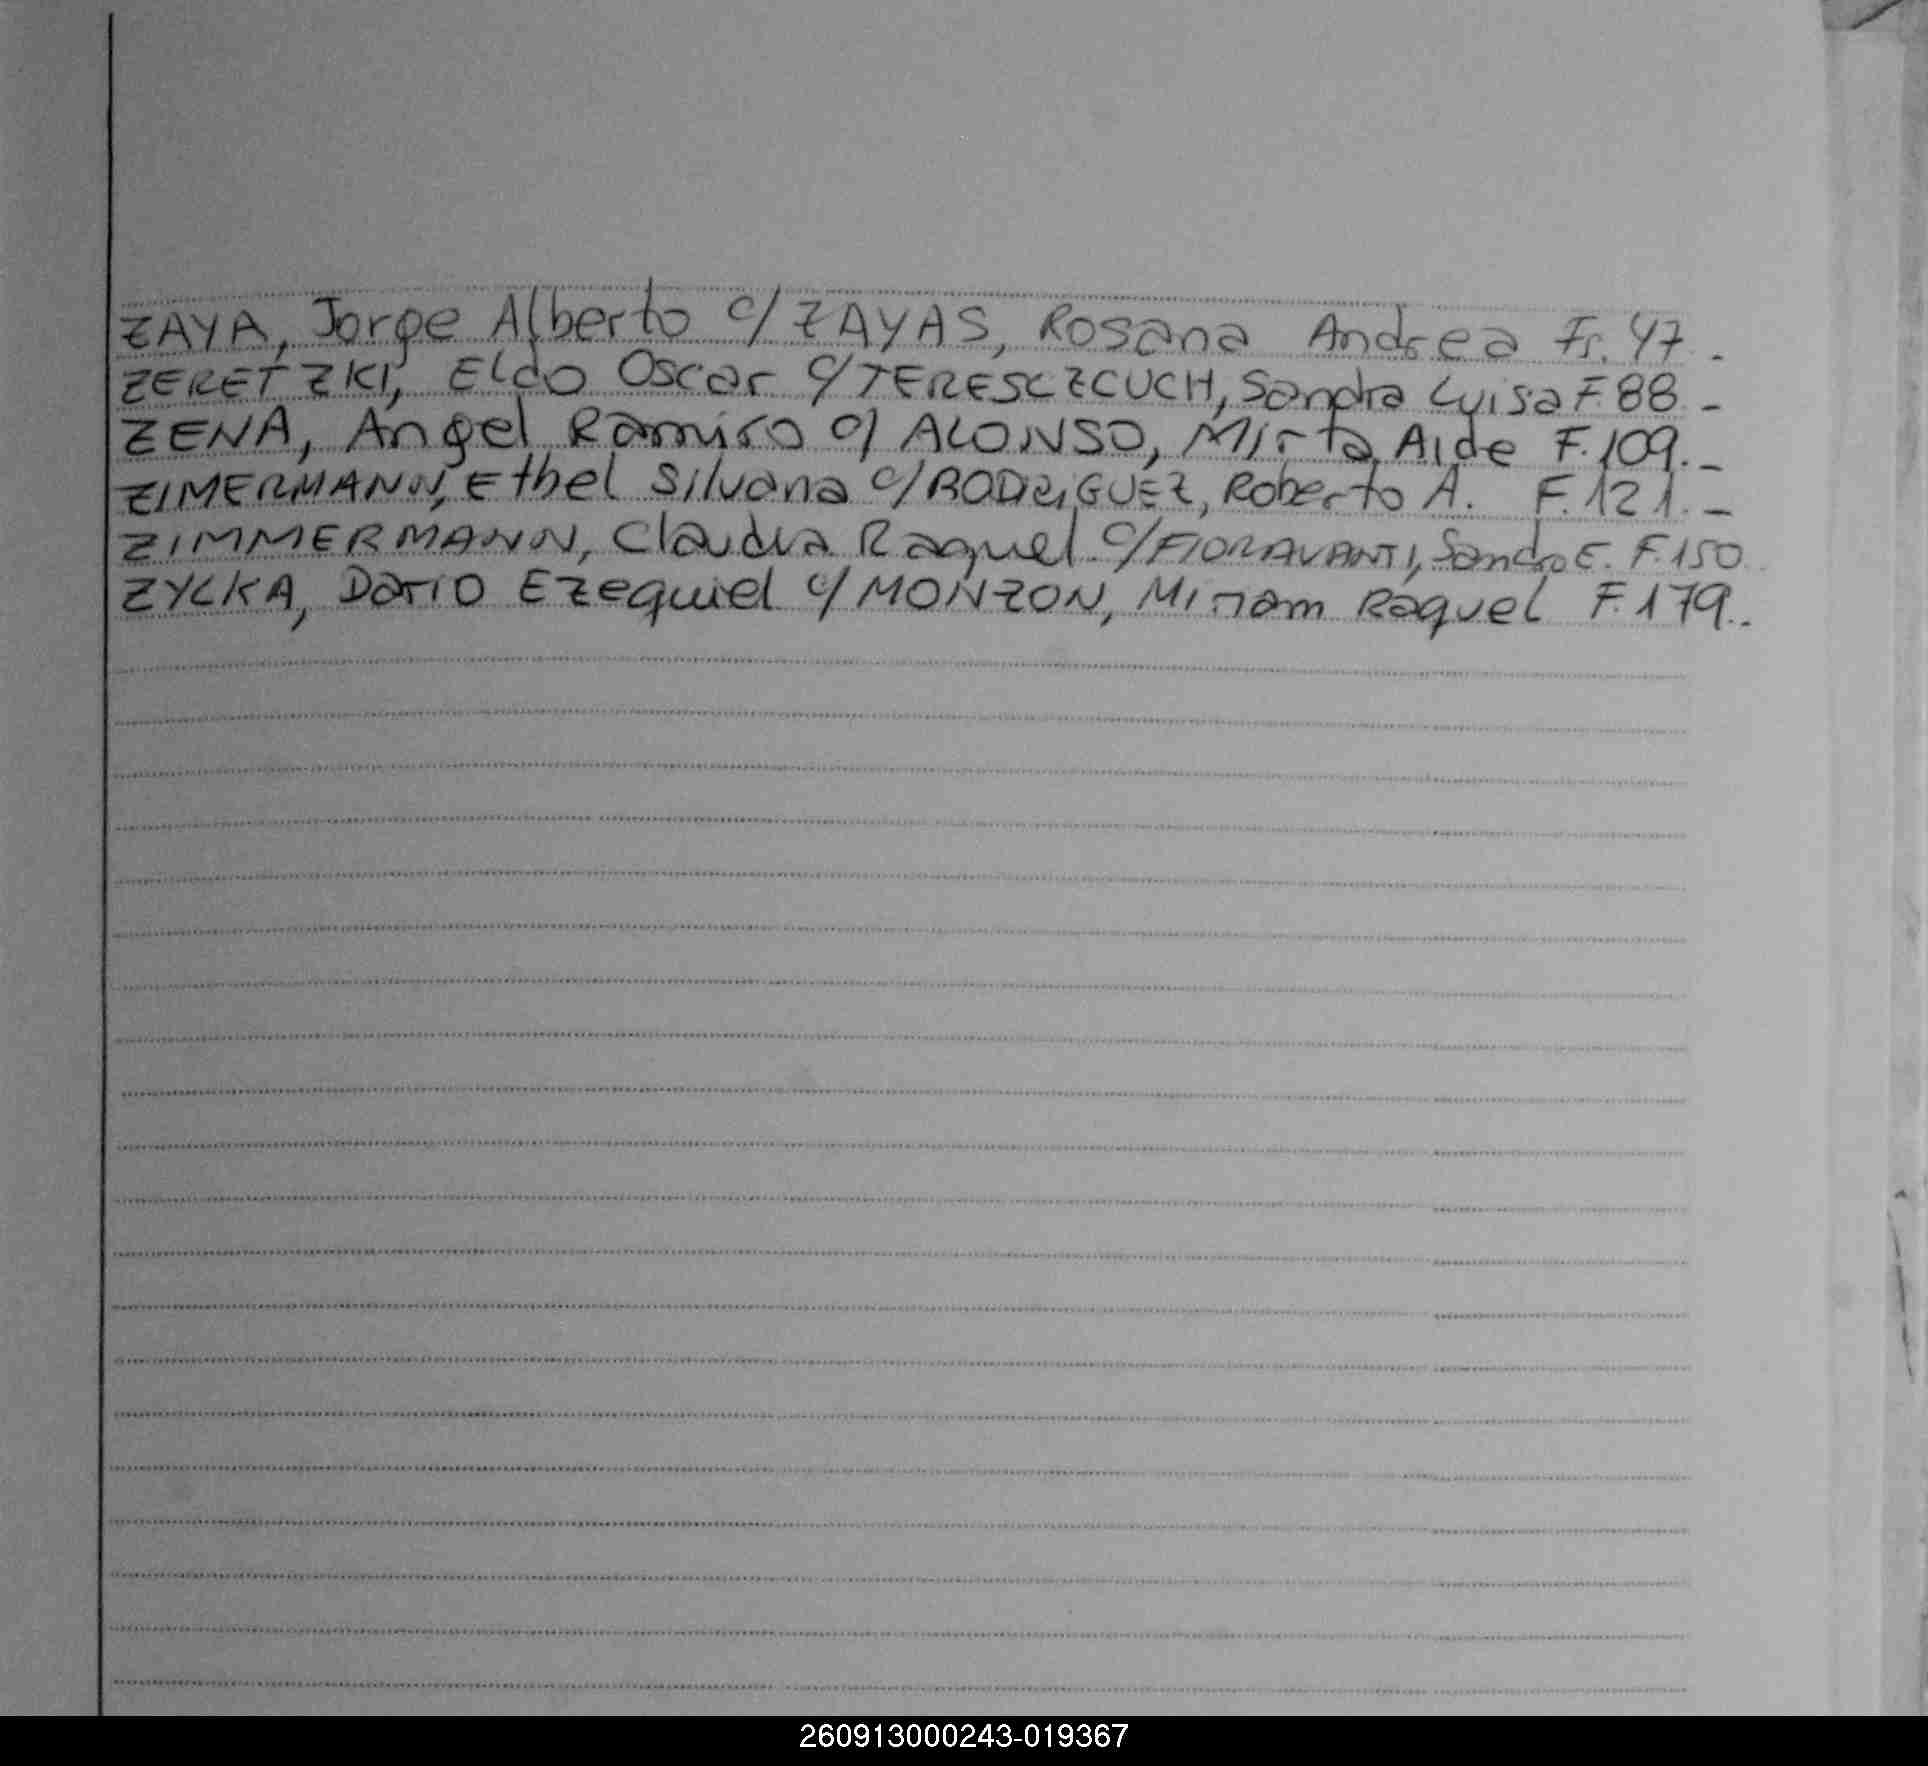 ZAYA, Jorge Alberto c/ ZAYAS, Rosana Andrea Fs. 47.-
ZERETZKI, Eldo Oscar c/ TERESCZCUCH, Sandra Luisa F. 88.-
ZENA, Angel Ramiro c/ ALONSO, Mirta Aide F. 109.-
ZIMERMANN, Ethel Silvana c/ RODRIGUEZ, Roberto A. F. 121.-
ZIMMERMANN, Claudia Raquel c/ FIORAVANTI, Sandro E. F. 150
ZYCKA, Dario Ezequiel c/ MONZON, Miriam Raquel F. 179..
260913000243-019367